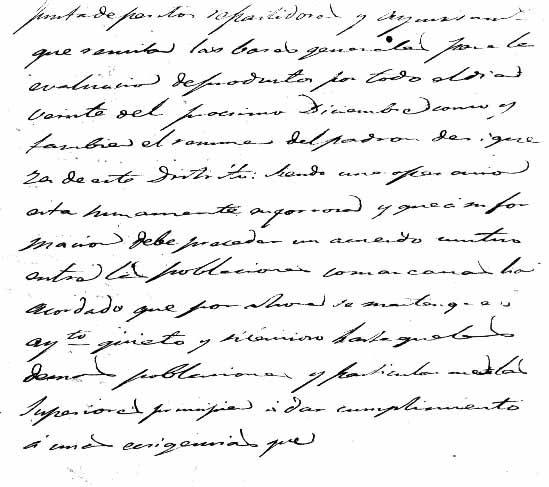 junta de peritos repartidora y ayuntam
que remita las bases generales para la
evaluacion de productos por todo el dia
veinte del procsimo Diciembre como y
tambien el resumen del padron de rique
za de este Distrito: siendo una operacion
esta sumamente rigorosa y que á su for
macion debe preceder un acuerdo mutuo
entre las poblaciones comarcanas ha
acordado que por ahora se mantenga
ayto quieto y silencioso hasta que las
demas poblaciones y particular
Superiores principie á dar cumplimiento
á unas ecsigencias que